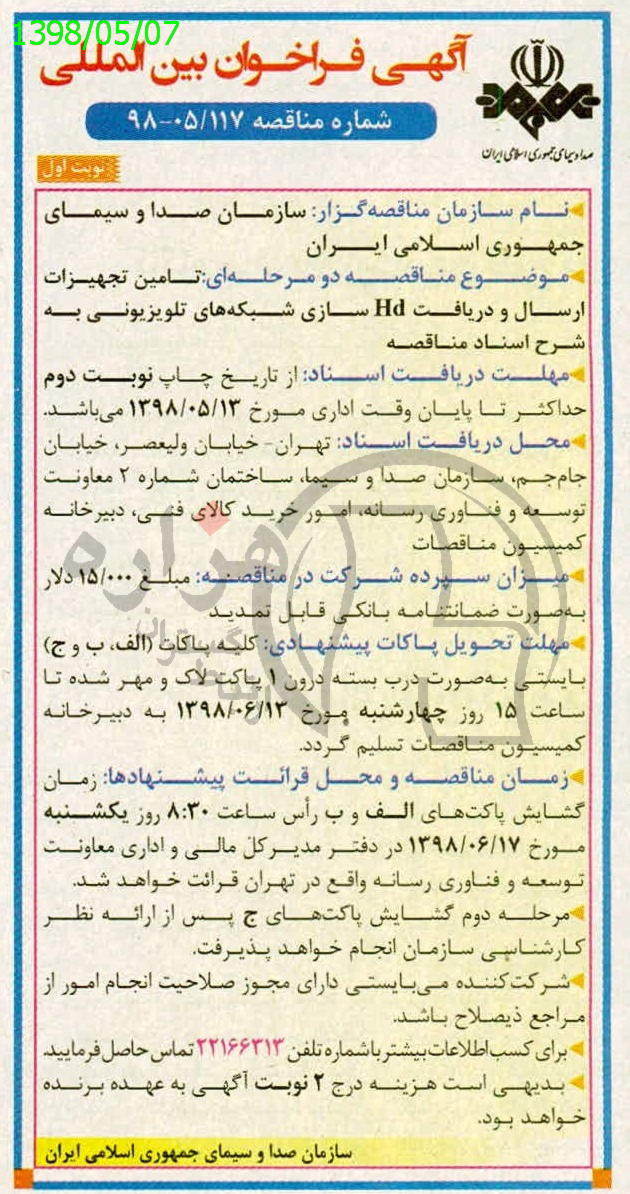 1398/05/07
آگهی فراخوان بین المللی
شماره مناقصه ۹۸-۰۵/۱۱۷
صدا و سیمای جمهوری اسلامی ایران
نوبت اول
نام سازمان مناقصه‌گزار: سازمان صدا و سیمای
جمهوری اسلامی ایران
موضوع مناقصه دو مرحله‌ای: تامین تجهیزات
ارسال و دریافت Hd سازی شبکه‌های تلویزیونی به
شرح اسناد مناقصه
مهلت دریافت اسناد: از تاریخ چاپ نوبت دوم
حداکثر تا پایان وقت اداری مورخ ۱۳۹۸/۰۵/۱۳ می‌باشد.
محل دریافت اسناد: تهران- خیابان ولیعصر، خیابان
جام‌جم، سازمان صدا و سیما، ساختمان شماره ۲ معاونت
توسعه و فناوری رسانه، امور خرید کالای فنی، دبیرخانه
کمیسیون مناقصات
میزان سپرده شرکت در مناقصه: مبلغ ۱۵/۰۰۰ دلار
به‌صورت ضمانتنامه بانکی قابل تمدید
مهلت تحویل پاکات پیشنهادی: کلیه پاکات (الف، ب و ج)
بایستی به‌صورت درب بسته درون ۱ پاکت لاک و مهر شده تا
ساعت ۱۵ روز چهارشنبه مورخ ۱۳۹۸/۰۶/۱۳ به دبیرخانه
کمیسیون مناقصات تسلیم گردد.
زمان مناقصه و محل قرائت پیشنهادها: زمان
گشایش پاکت‌های الف و ب رأس ساعت ۸:۳۰ روز یکشنبه
مورخ ۱۳۹۸/۰۶/۱۷ در دفتر مدیرکل مالی و اداری معاونت
توسعه و فناوری رسانه واقع در تهران قرائت خواهد شد.
مرحله دوم گشایش پاکت‌های ج پس از ارائه نظر
کارشناسی سازمان انجام خواهد پذیرفت.
شرکت‌کننده می‌بایستی دارای مجوز صلاحیت انجام امور از
مراجع ذیصلاح باشد.
برای کسب اطلاعات بیشتر با شماره تلفن ۲۲۱۶۶۳۱۳ تماس حاصل فرمایید.
بدیهی است هزینه درج ۲ نوبت آگهی به عهده برنده
خواهد بود.
سازمان صدا و سیمای جمهوری اسلامی ایران
هزاره